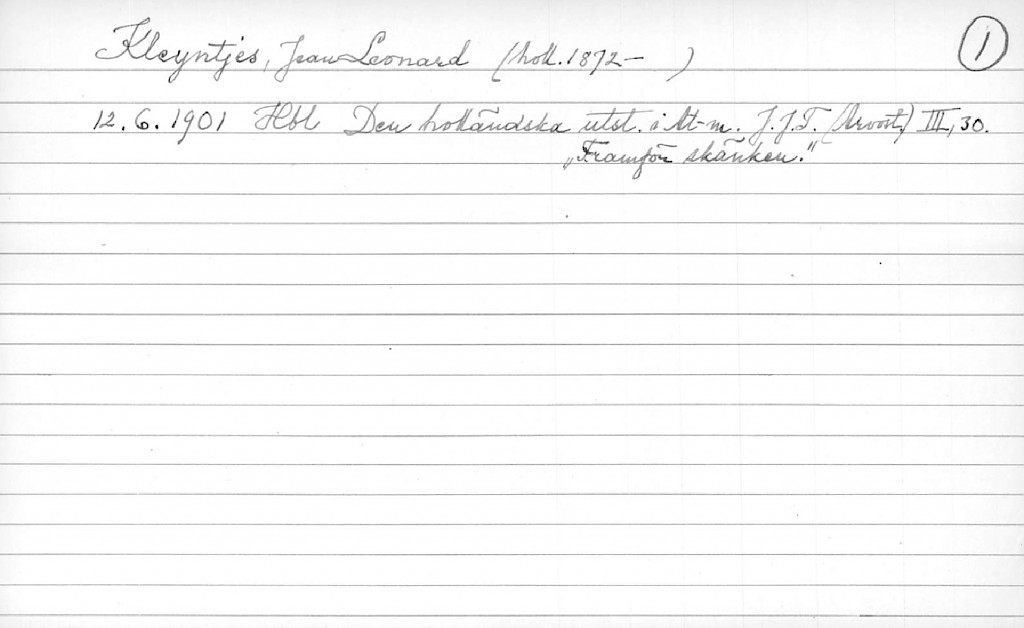 Kleyntjes, Jean Leonard (holl. 1872– ) 1
12. 6. 1901 Hbl Den holländska utst. i At-m. J.J.T. (Arvost.) III, 30.
„Framför skänken."